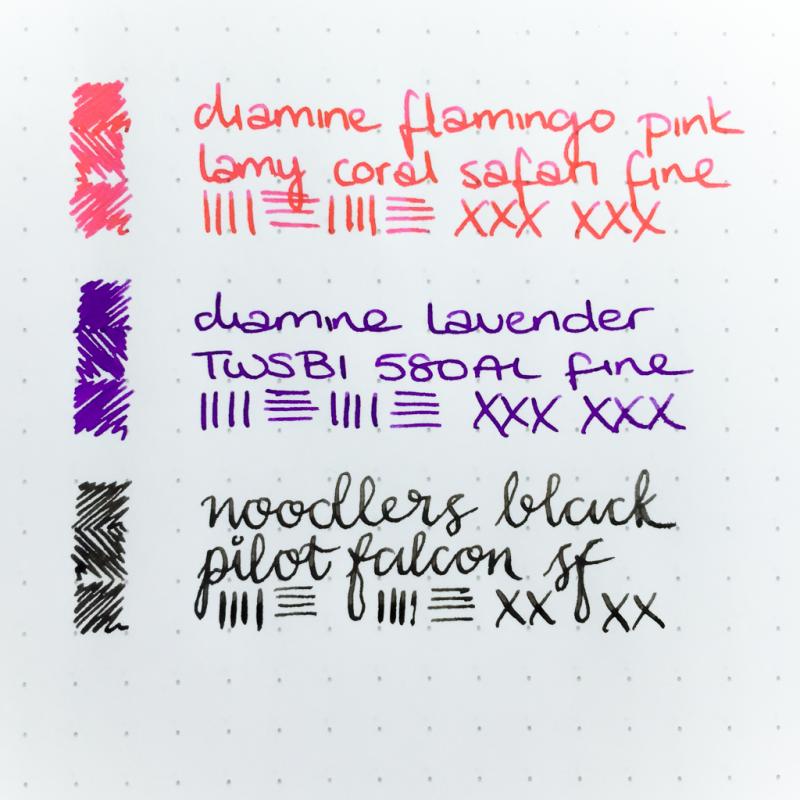 diamine flamingo pink
lamy coral safari fine
|||| ||||  XXX XXX
diamine lavender
TWSBI 580AL fine
|||| ||||  XXX XXX
noodlers black
pilot falcon sf
|||| ||||  XX XX